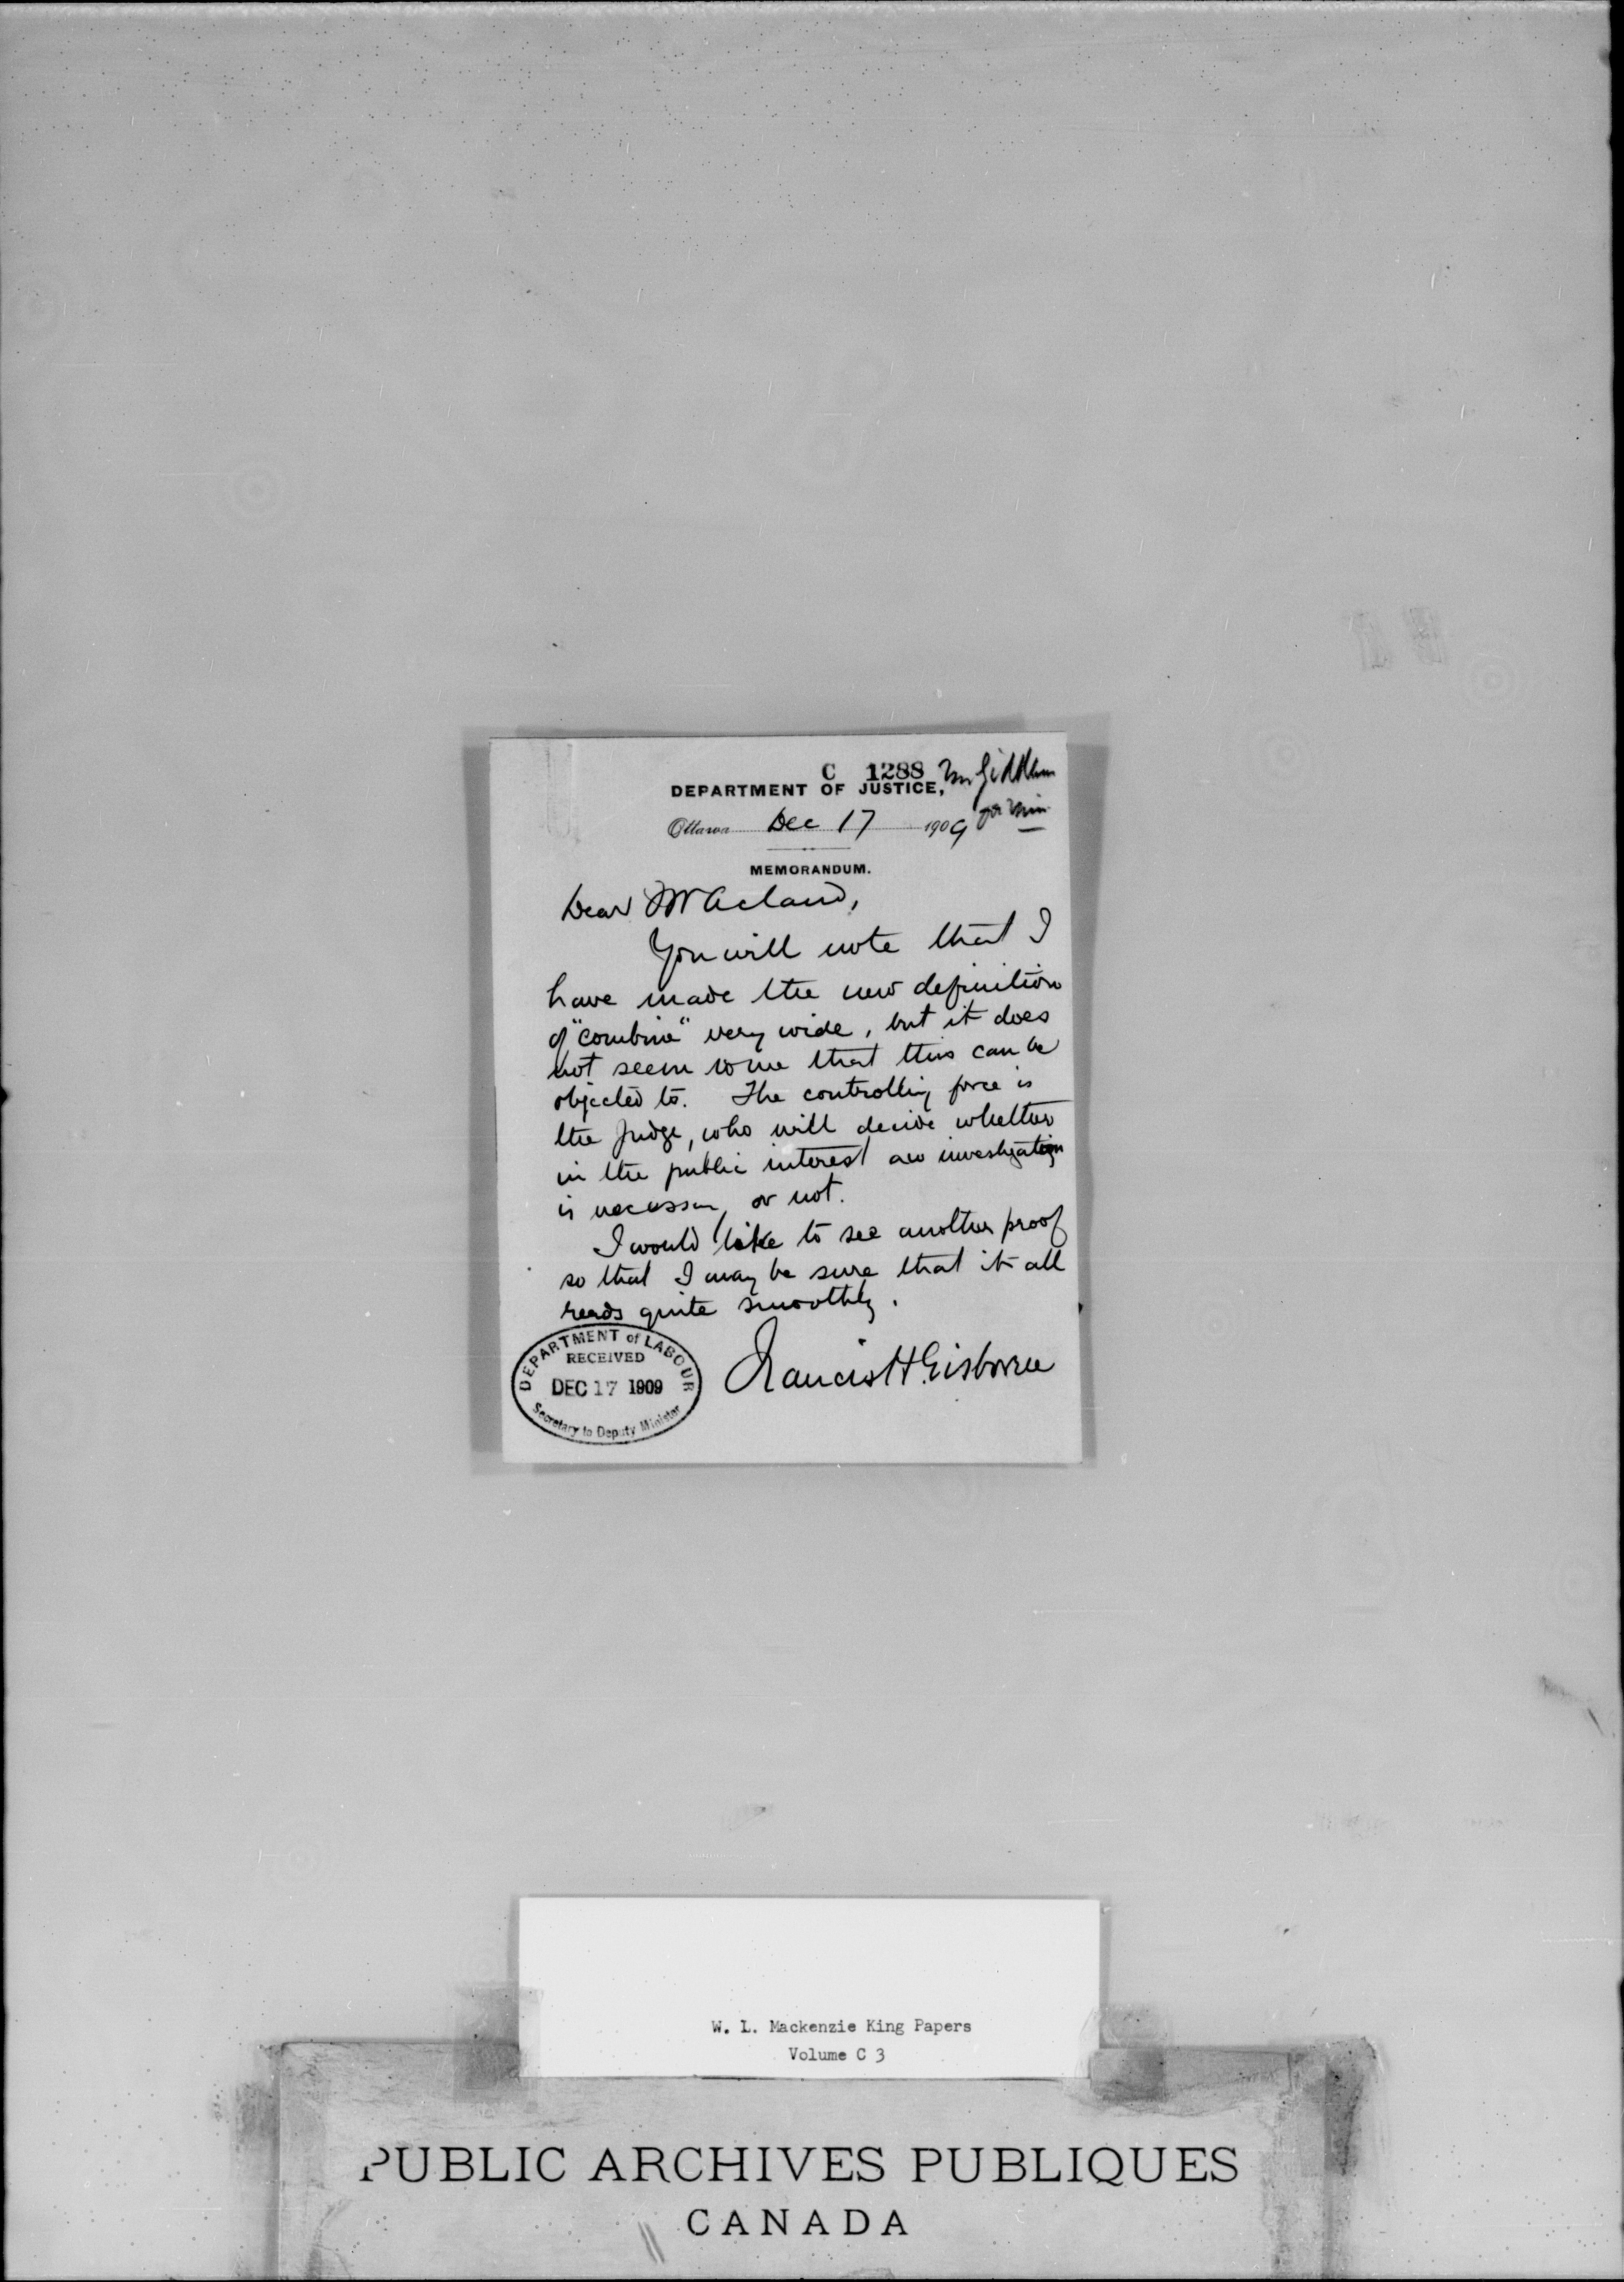 C 1288
Mr Giddens
for Min
DEPARTMENT OF JUSTICE,
Ottawa Dec 17 1909
MEMORANDUM.
Dear Mr Acland,
You will note that I
have made the new definition
of "combine" very wide, but it does
not seem to me that this can be
objected to. The controlling force is
the Judge, who will decide whether
in the public interest an investigation
is necessary or not.
I would like to see another proof
so that I may be sure that it all
reads quite smoothly.
Francis H. Gisborne
DEPARTMENT of LABOUR
RECEIVED
DEC 17 1909
Secretary to Deputy Minister
W. L. Mackenzie King Papers
Volume C 3
PUBLIC ARCHIVES PUBLIQUES
CANADA